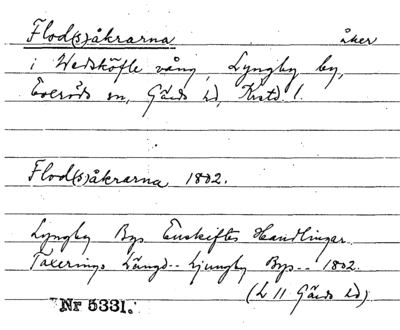 Flod(s)åkrarna åker
i Wedsköfle vång, Lyngby by,
Everöds sn, Gärds hd, Krstd l.
Flod(s)åkrarna 1802.
Lyngby Bys Enskiftes Handlingar
Taxerings Längd -- Ljungby Bys -- 1802.
(L 11 Gärds hd)
Nr 5331.